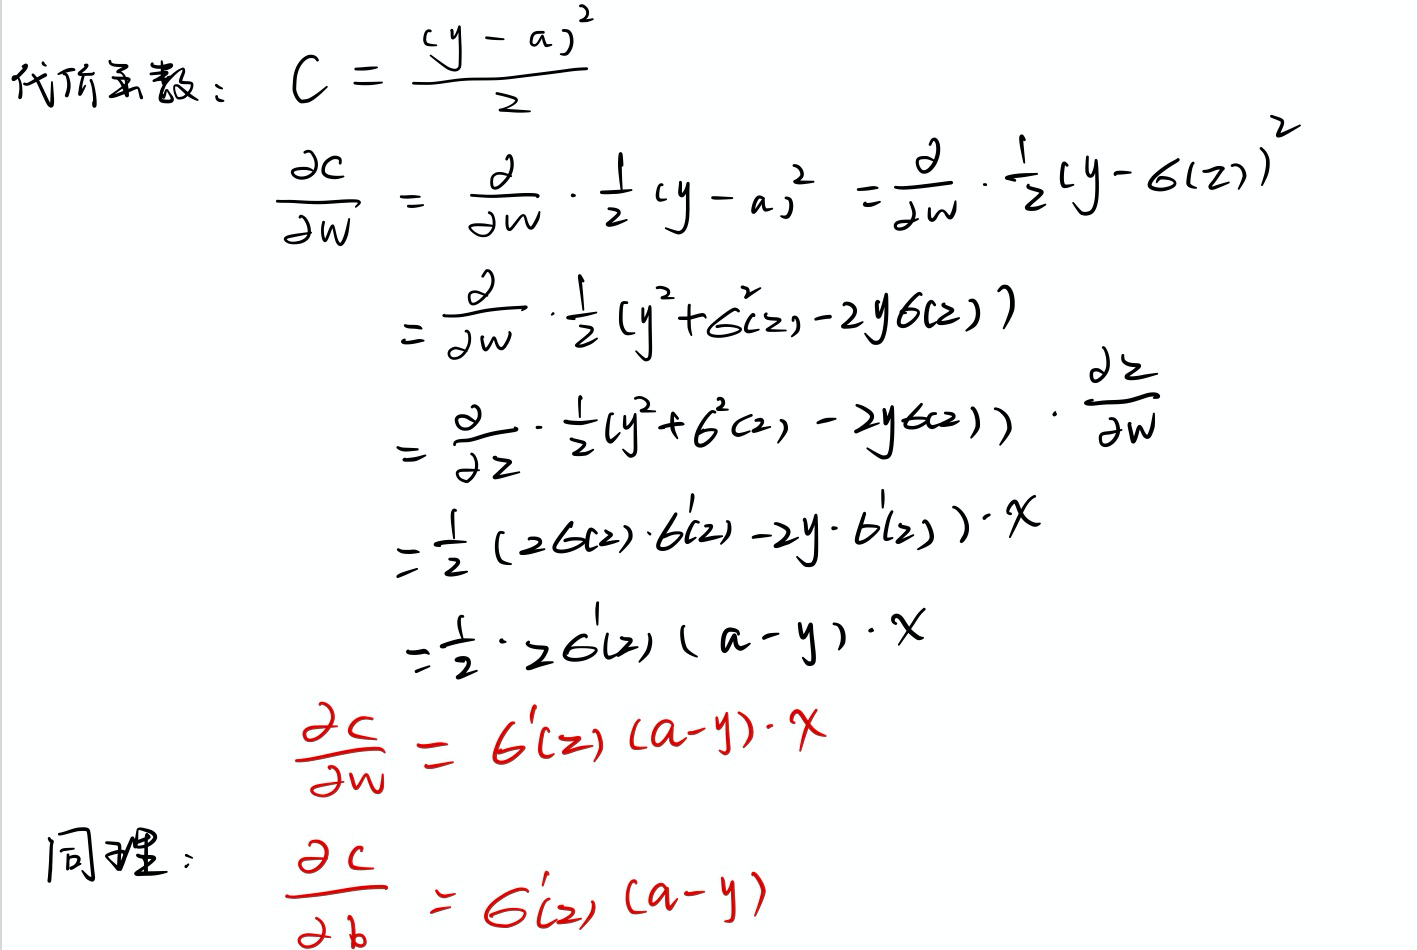 代价系数: C = (y - a)²/2
∂c/∂w = ∂/∂w · 1/2 (y - a)² = ∂/∂w · 1/2 (y - σ(z))²
= ∂/∂w · 1/2 (y² + σ²(z) - 2yσ(z))
= ∂/∂z · 1/2 (y² + σ²(z) - 2yσ(z)) · ∂z/∂w
= 1/2 (2σ(z)·σ'(z) - 2y·σ'(z)) · x
= 1/2 · 2σ'(z) (a - y) · x
∂c/∂w = σ'(z) (a - y) · x
同理: ∂c/∂b = σ'(z) (a - y)